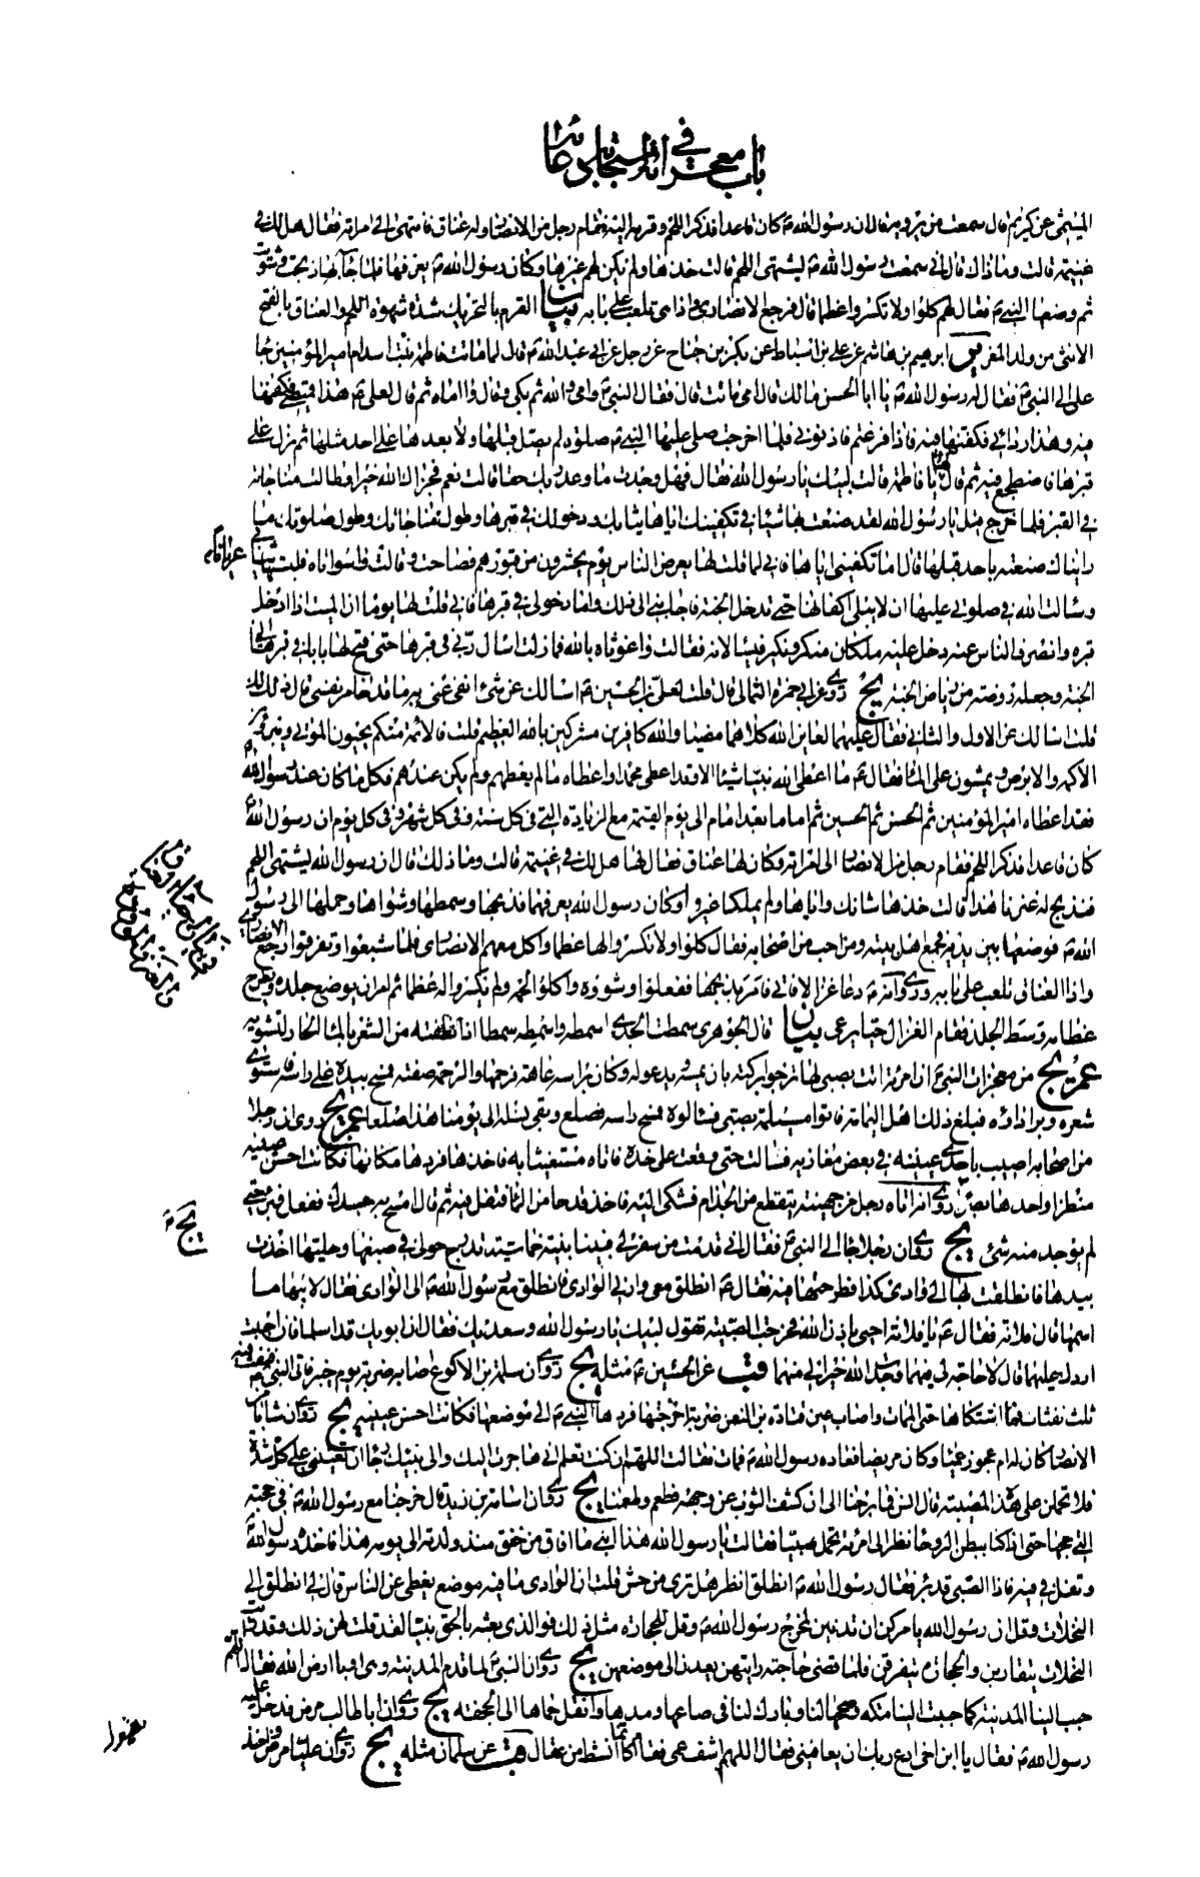 باب معجزاته في استجابة دعائه
الميثمي عن كريم قال سمعت من يرويه قال ان رسول الله ص كان قاعدا فذكر اللحم وقرمه اليه فقام رجل من الانصار وله عناق فانتهى الى امراته فقال هل لك في
غنيمة قالت وما ذاك قال اني سمعت رسول الله ص يشتهي اللحم قالت خذها ولم يكن لهم غيرها وكان رسول الله ص يعرفها فلما جاء بها ذبحت وشويت
ثم وضعها النبي ص فقال لهم كلوا ولا تكسروا عظما قال فرجع الانصاري واذا هي تلعب على بابه بيان القرم بالتحريك شدة شهوة اللحم والعناق بالفتح
الانثى من ولد المعز ير ابرهيم بن هاشم عن علي بن اسباط عن بكر بن جناح عن رجل عن ابي عبد الله ع قال لما ماتت فاطمة بنت اسد ام امير المؤمنين جاء
علي الى النبي ص فقال له رسول الله ص يا ابا الحسن مالك قال امي ماتت قال فقال النبي ص وامي والله ثم بكى وقال وا اماه ثم قال لعلي ع هذا قميصي فكفنها
فيه وهذا ردائي فكفنها فيه فاذا فرغتم فاذنوني فلما اخرجت صلى عليها النبي ص صلوة لم يصل قبلها ولا بعدها على احد مثلها ثم نزل على
قبرها فاضطجع فيه ثم قال لها يا فاطمة قالت لبيك يا رسول الله فقال فهل وجدت ما وعد ربك حقا قالت نعم فجزاك الله خيرا وطالت مناجاته
في القبر فلما خرج قيل يا رسول الله لقد صنعت بها شيئا في تكفينك اياها ثيابك ودخولك في قبرها وطول مناجاتك وطول صلوتك ما
رايناك صنعته باحد قبلها قال اما تكفيني اياها فاني لما قلت لها يعرض الناس يوم يحشرون من قبورهم فصاحت وقالت واسوأتاه فلبستها ثيابي
وسالت الله في صلوتي عليها ان لا يبلي اكفانها حتى تدخل الجنة فاجابني الى ذلك واما دخولي في قبرها فاني قلت لها يوما ان الميت اذا ادخل
قبره وانصرف الناس عنه دخل عليه ملكان منكر ونكير فيسالانه فقالت واغوثاه بالله فما زلت اسال ربي في قبرها حتى فتح لها باب في قبرها الى
الجنة وجعله روضة من رياض الجنة يج روي عن ابي حمزة الثمالي قال قلت لعلي بن الحسين ع اسالك عن شيء انفي عني به ما قد خامر نفسي قال ذلك لك
قلت اسالك عن الاول والثاني فقال عليهما لعاين الله كلاهما مضيا والله كافرين مشركين بالله العظيم قلت فالائمة منكم يحيون الموتى ويبرؤن
الاكمه والابرص ويمشون على الماء فقال ع ما اعطى الله نبيا شيئا الا وقد اعطى محمدا واعطاه ما لم يعطهم ولم يكن عندهم فكل ما كان عند رسول الله
فقد اعطاه امير المؤمنين ثم الحسن ثم الحسين ثم اماما بعد امام الى يوم القيمة مع الزيادة التي في كل سنة وفي كل شهر وفي كل يوم ان رسول الله ص
كان قاعدا فذكر اللحم فقام رجل من الانصار الى امراته وكان لها عناق فقال لها هل لك في غنيمة قالت وما ذلك قال ان رسول الله يشتهي اللحم
فنذبح له عنزنا هذا قالت خذها شانك واياها ولم يملكا غيرها وكان رسول الله يعرفهما فذبحها وسمطها وشواها وحملها الى رسول
الله ص فوضعها بين يديه فجمع اهل بيته ومن احب من اصحابه فقال كلوا ولا تكسروا لها عظما واكل معهم الانصاري فلما شبعوا وتفرقوا رجع الانصاري
واذا العناق تلعب على بابه وروي انه ع دعا غزالا فاتي فامر بذبحها ففعلوا وشووه واكلوا لحمه ولم يكسروا له عظما ثم امر ان يوضع جلده ويطرح
عظامه وسط الجلد فقام الغزال حيا يرعى بيان قال الجوهري سمطت الجدي اسمطه واسمطه سمطا اذا نظفته من الشعر بالماء الحار لتشويه
عم يج من معجزات النبي ص ان امراة اتت بصبي لها ترجو بركته بان يمسه ويدعو له وكان براسه عاهة فرحمها والرحمة صفته فمسح بيده على راسه فاستوى
شعره وبرا داؤه فبلغ ذلك اهل اليمامة فاتوا مسيلمة بصبي فسالوه فمسح راسه فصلع وبقي نسله الى يومنا هذا صلعا عم يج روي ان رجلا
من اصحابه اصيب باحدى عينيه في بعض مغازيه فسالت حتى وقعت على خده فاتاه مستغيثا به فاخذها فردها مكانها فكانت احسن عينيه
منظرا واحدهما بصرا روي انه اتاه رجل من جهينة يتقطع من الجذام فشكى اليه فاخذ قدحا من الماء فتفل فيه ثم قال امسح به جسدك ففعل فبرئ حتى
لم يوجد منه شيء يج روي ان رجلا جاء الى النبي ص فقال اني قدمت من سفر لي فبينا بنية خماسية تدرج حولي في صبغها وحليها اخذت
بيدها فانطلقت بها الى وادي كذا فطرحتها فيه فقال ص انطلق معي وارني الوادي فانطلق مع رسول الله ص الى الوادي فقال لابيها ما
اسمها قال فلانة فقال ع يا فلانة احيي باذن الله فخرجت الصبية تقول لبيك يا رسول الله وسعديك فقال ان ابويك قد اسلما فان احببت
اردك عليهما قالت لا حاجة لي فيهما وجدت الله خيرا لي منهما قب عن الحسين ع مثله يج روي ان سلمة بن الاكوع اصابه ضربة يوم خيبر فاتى النبي ص فنفث فيه
ثلث نفثات فما اشتكاها حتى الممات واصاب عين قتادة بن النعمان ضربة اخرجتها فردها النبي ص الى موضعها فكانت احسن عينيه يج روي ان شابا من
الانصار كان له ام عجوز عمياء وكان مريضا فعاده رسول الله ص فمات فقالت اللهم ان كنت تعلم اني هاجرت اليك والى نبيك رجاء ان تعينني على كل شدة
فلا تحملن علي هذه المصيبة قال انس فما برحنا الى ان كشف الثوب عن وجهه فطعم وطعمنا يج روي ان اسامة بن زيد قال خرجنا مع رسول الله ص في حجته
التي حجها حتى اذا كنا ببطن الروحاء نظر الى امراة تحمل صبيا فقالت يا رسول الله هذا ابني ما افاق من خنق منذ ولدته الى يومه هذا فاخذه رسول الله ص
وتفل في فيه فاذا الصبي قد برئ فقال رسول الله ص انطلق انظر هل ترى من حش قلت ان الوادي ما فيه موضع يغطي عن الناس قال لي انطلق الى
النخلات وقل ان رسول الله يامركن ان تدنين لمخرج رسول الله ص وقل للحجارة مثل ذلك فوالذي بعثه بالحق نبيا لقد قلت لهن ذلك وقد رايت
النخلات يتقاربن والحجارة يتفرقن فلما قضى حاجته رايتهن يعدن الى موضعهن يج روي ان النبي ص لما قدم المدينة وهي اوبا ارض الله فقال اللهم
حبب الينا المدينة كما حببت الينا مكة وصححها لنا وبارك لنا في صاعها ومدها وانقل حماها الى الجحفة يج روي ان ابا طالب مرض فدخل عليه
رسول الله ص فقال يا ابن اخي ادع ربك ان يعافيني فقال اللهم اشف عمي فقام كانما انشط من عقال قب عن سلمان مثله يج روي ان عليا مرض واخذ
عراة
يج
يقول